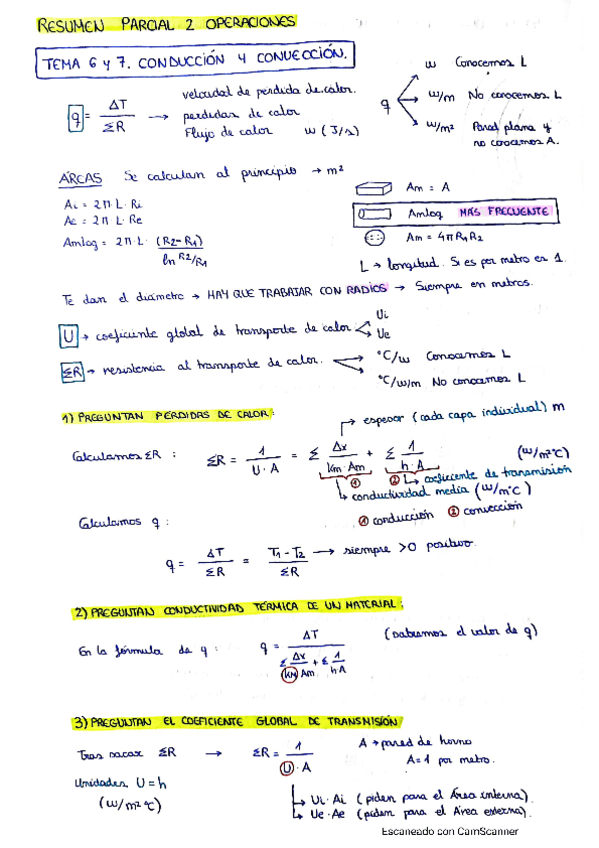 RESUMEN PARCIAL 2 OPERACIONES
TEMA 6 y 7. CONDUCCIÓN Y CONVECCIÓN.
q = ΔT / ΣR → velocidad de perdida de calor.
perdidas de calor
Flujo de calor W (J/s)
q
W Conocemos L
W/m No conocemos L
W/m² Pared plana y no conocemos A.
ÁREAS Se calculan al principio → m²
Ai = 2π·L·Ri
Ae = 2π L·Re
Amlog = 2π·L· (R2-R1) / ln R2/R1
Am = A
Amlog MÁS FRECUENTE
Am = 4πR1R2
L → longitud. Si es por metro es 1.
Te dan el diámetro → HAY QUE TRABAJAR CON RADIOS → Siempre en metros.
U → coeficiente global de transporte de calor
Ui
Ue
ΣR → resistencia al transporte de calor.
°C/W Conocemos L
°C/W/m No conocemos L
1) PREGUNTAN PÉRDIDAS DE CALOR:
espesor (cada capa individual) m
Calculamos ΣR : ΣR = 1 / U·A = Σ Δx / km·Am + Σ 1 / h·A (W/m²°C)
① ② coeficiente de transmisión
conductividad media (W/m°C)
① conducción ② convección
Calculamos q :
q = ΔT / ΣR = T1 - T2 / ΣR → siempre >0 positivo.
2) PREGUNTAN CONDUCTIVIDAD TÉRMICA DE UN MATERIAL:
En la fórmula de q : q = ΔT / Σ Δx / km Am + Σ 1 / h·A (sabremos el valor de q)
3) PREGUNTAN EL COEFICIENTE GLOBAL DE TRANSMISIÓN
Tras sacar ΣR → ΣR = 1 / U·A
A → pared de horno
A=1 por metro.
Unidades U = h
(W/m²°C)
Ui·Ai (piden para el Área interna).
Ue·Ae (piden para el Área externa).
Escaneado con CamScanner